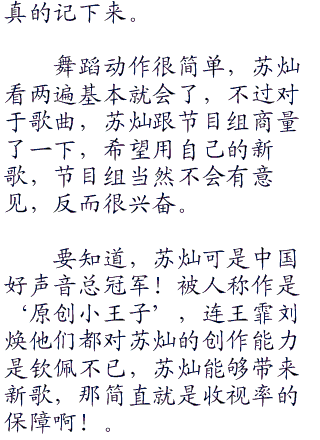 真的记下来。
舞蹈动作很简单，苏灿
看两遍基本就会了，不过对
于歌曲，苏灿跟节目组商量
了一下，希望用自己的新
歌，节目组当然不会有意
见，反而很兴奋。
要知道，苏灿可是中国
好声音总冠军！被人称作是
‘原创小王子’，连王霏刘
焕他们都对苏灿的创作能力
是钦佩不已，苏灿能够带来
新歌，那简直就是收视率的
保障啊！。